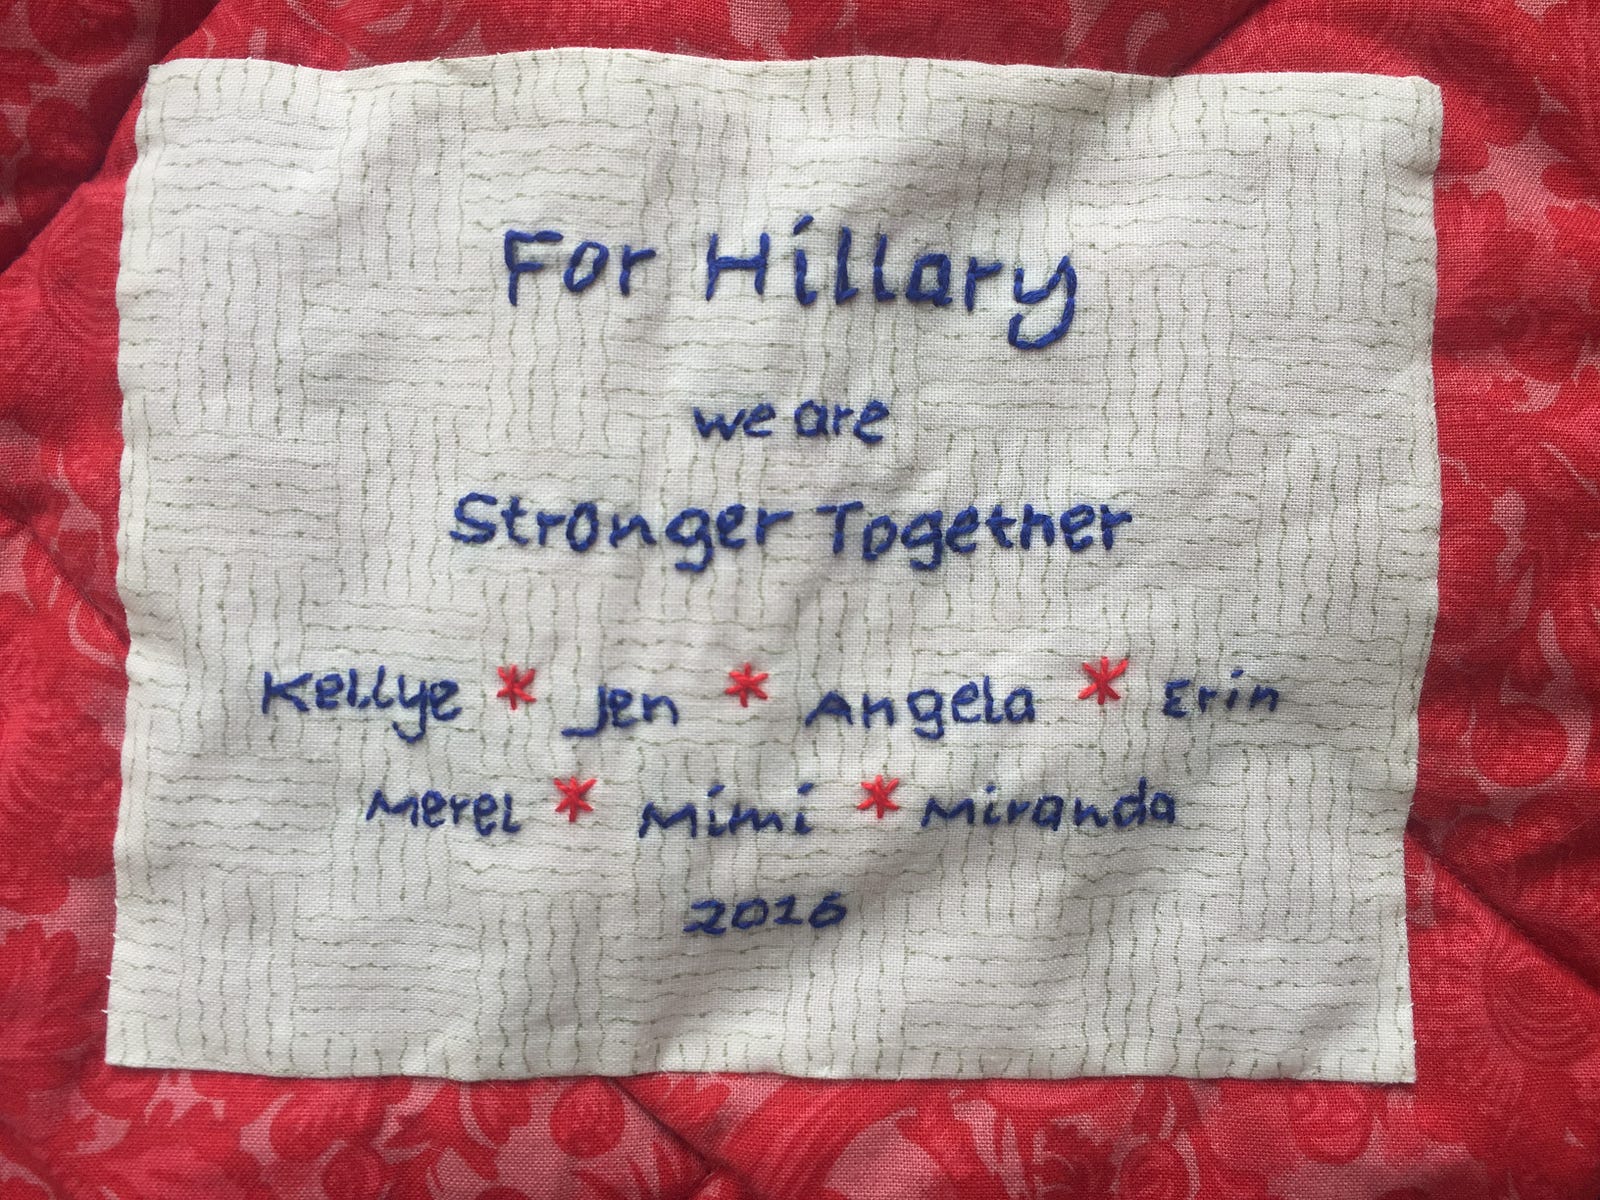 For Hillary
we are
Stronger Together
Kellye * Jen * Angela * Erin
Merel * Mimi * Miranda
2016